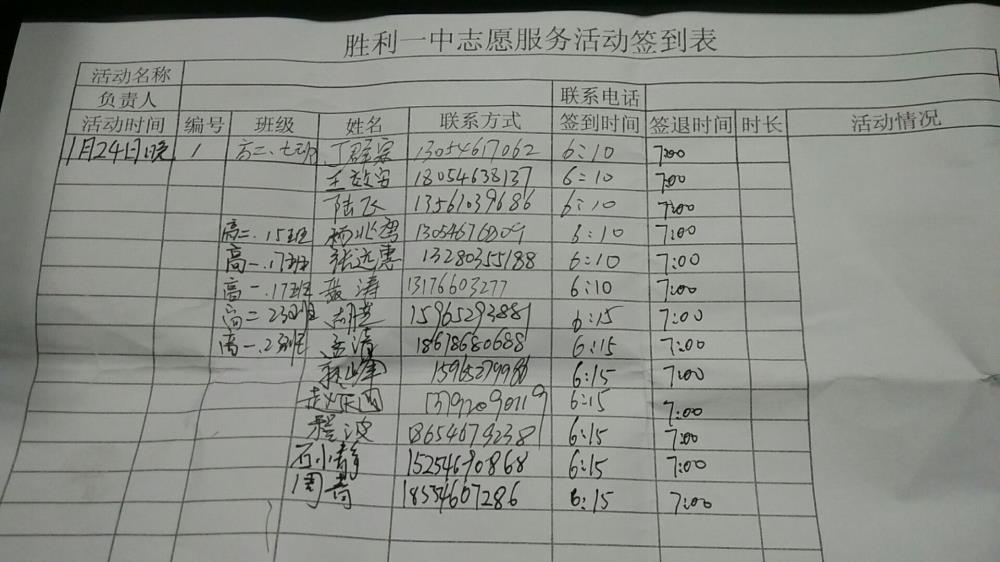 胜利一中志愿服务活动签到表
活动名称
负责人 联系电话
活动时间 编号 班级 姓名 联系方式 签到时间 签退时间 时长 活动情况
1月24日晚 1 高二.七班 丁 13054617062 6:10 7:00
王 18054638137 6:10 7:00
陆飞 13561039686 6:10 7:00
高二.15班 杨兆 6:10 7:00
高一.17班 张远惠 13280355188 6:10 7:00
高二.17班 聂涛 13176603277 6:10 7:00
高二23班 胡 15965293881 6:15 7:00
高一.23班 孟清 18678680688 6:15 7:00
6:15 7:00
赵 6:15 7:00
程波 18654679238 6:15 7:00
石小静 15254690868 6:15 7:00
周青 18554607286 6:15 7:00